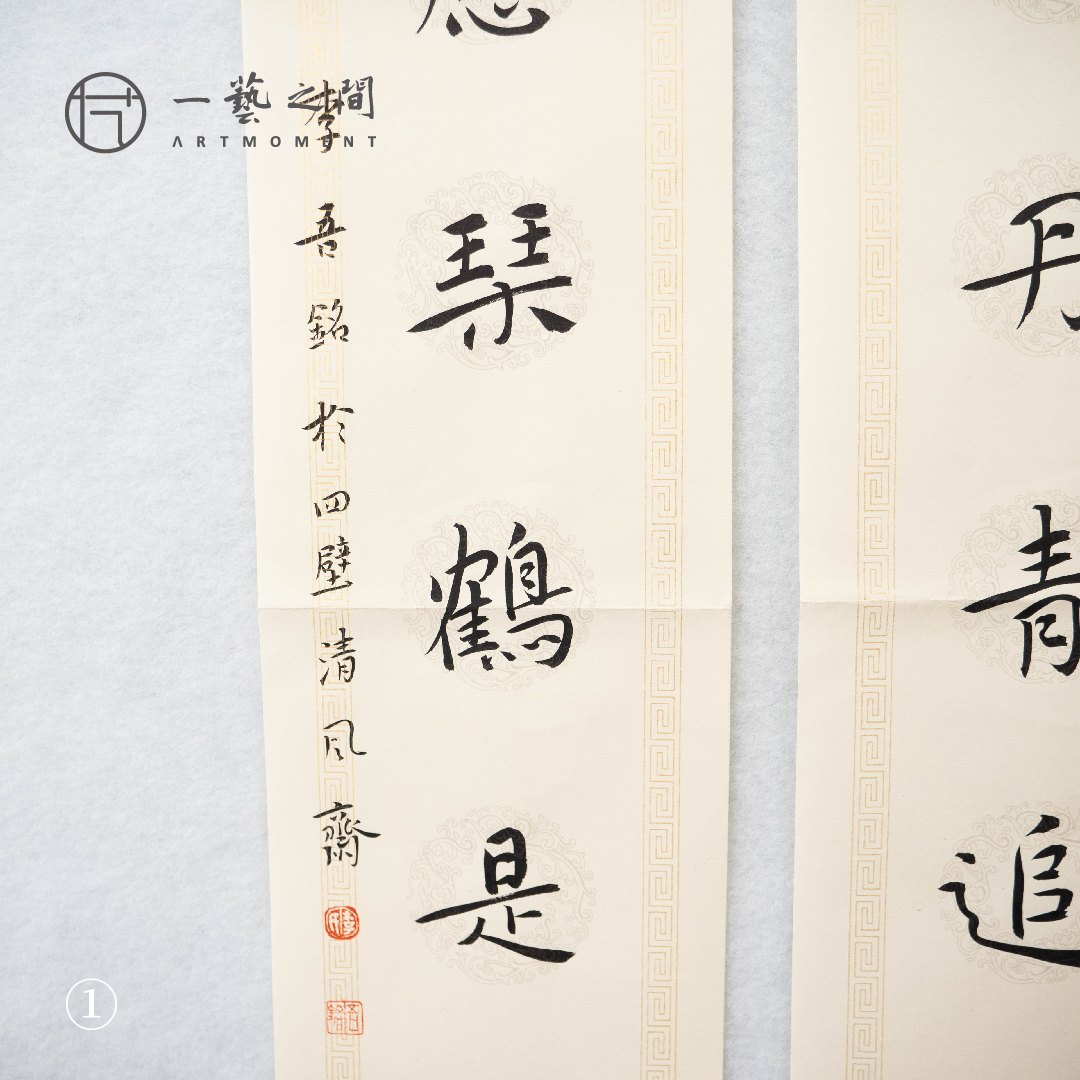 一藝之間
ARTMOMENT
丹青追
應琹鶴是
李吾銘於四壁清風齋
①